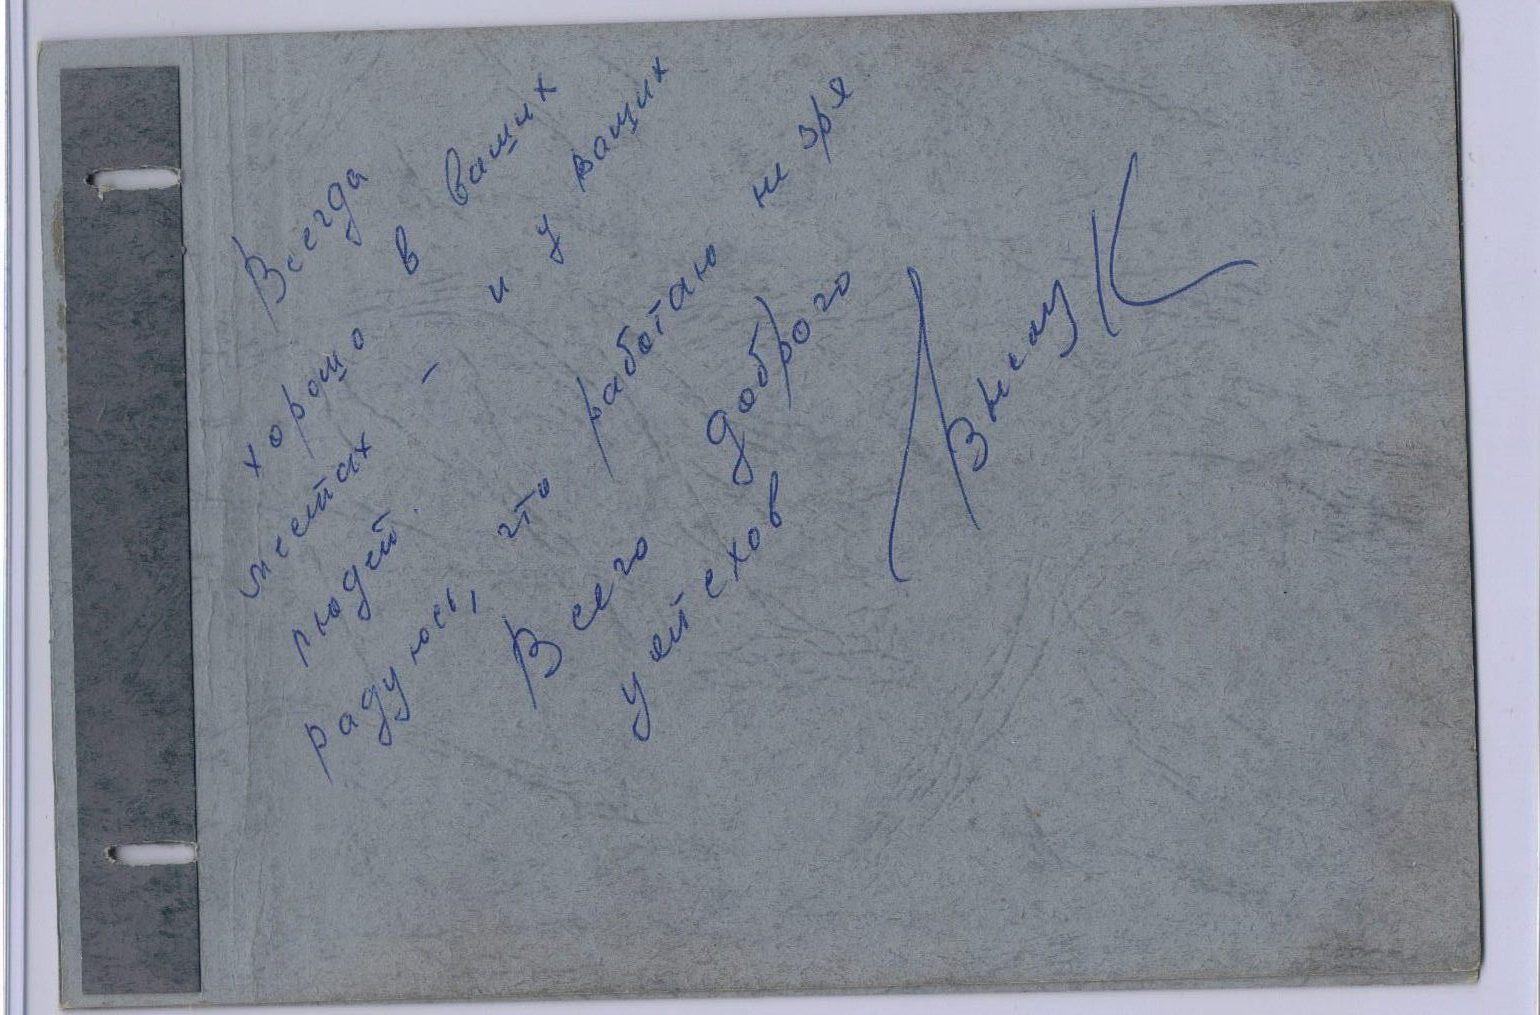 Всегда
хорошо в ваших
местах - и у ваших
людей.
радуюсь, что работаю не зря
Всего доброго
успехов